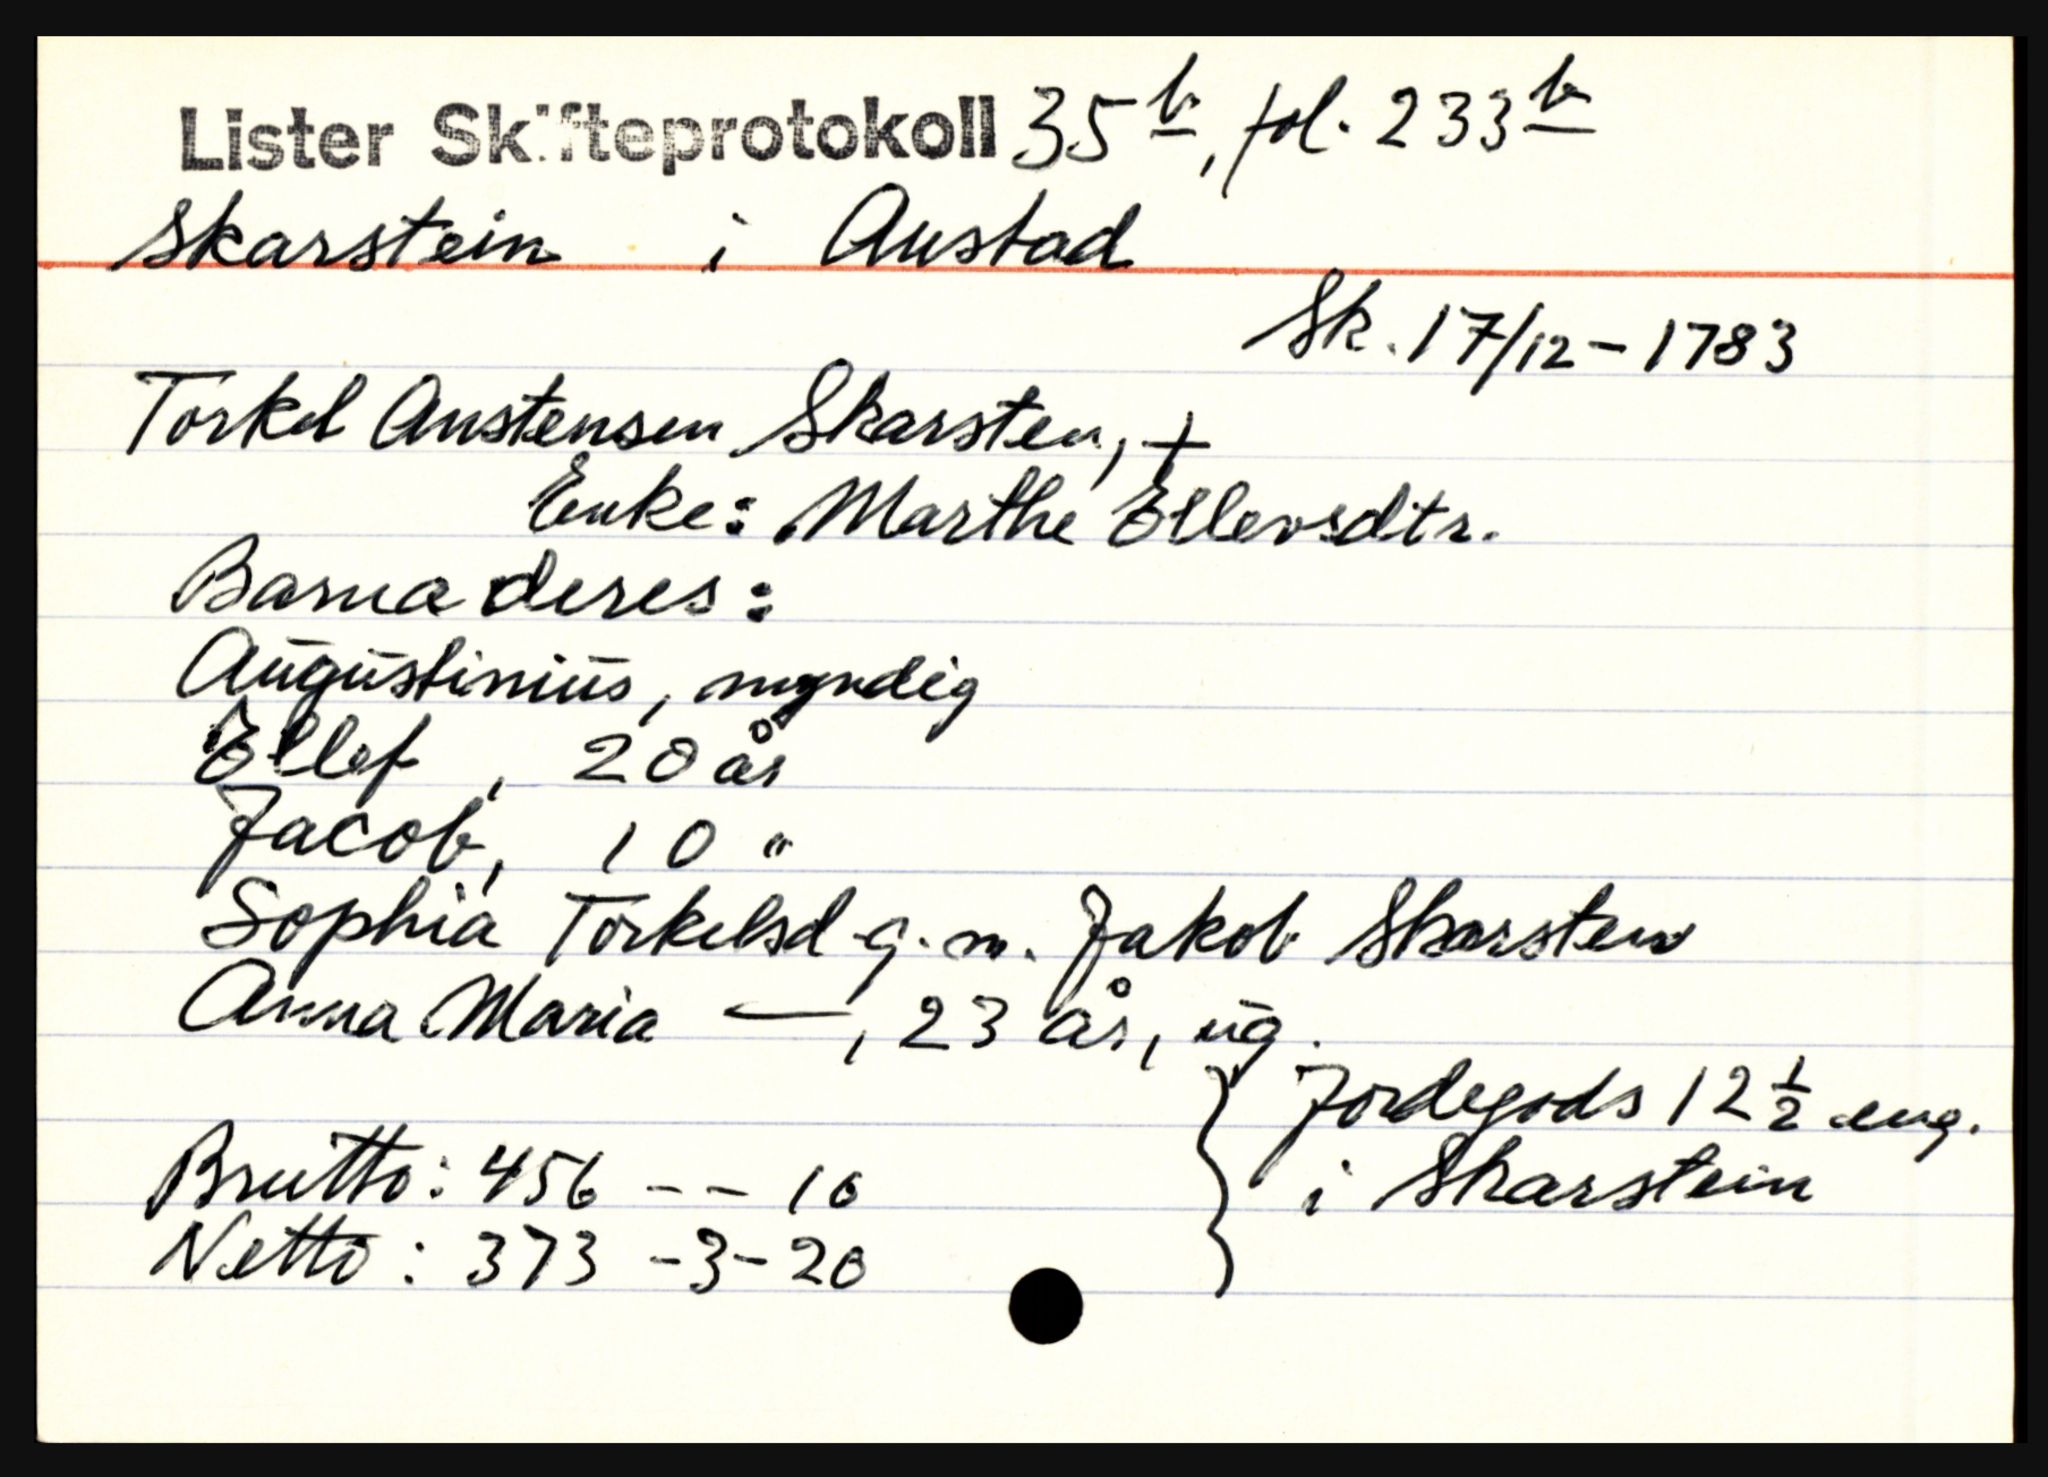 Lister Skifteprotokoll 35 b, fol. 233 b
Skarstein i Austad
Sk. 17/12 - 1783
Torkel Austensen Skarsten, +
Enke: Marthe Ellevsdtr.
Barna deres:
Augustinius, myndig
Ellef, 20 år
Jacob, 10 "
Sophia Torkelsd g. m. Jakob Skarsten
Anna Maria —, 23 år, ug.
Jordegods 12 1/2 eng.
Brutto: 456 -- 10
i Skarstein
Netto: 373 -3- 20